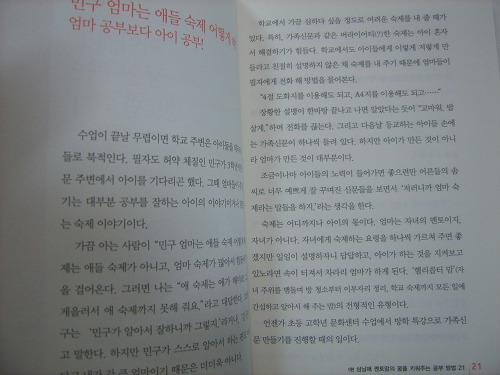 민구 엄마는 애들 숙제 어떻게
엄마 공부보다 아이 공부!
수업이 끝날 무렵이면 학교 주변은 아이들을
들로 북적인다. 필자도 허약 체질인 민구가 3학년
문 주변에서 아이를 기다리곤 했다. 그때 엄마들이
기는 대부분 공부를 잘하는 아이의 이야기이거나
는 숙제 이야기이다.
가끔 아는 사람이 "민구 엄마는 애들 숙제
제는 애들 숙제가 아니고, 엄마 숙제가 많아서 힘들
을 걸어온다. 그러면 나는 "애 숙제는 애가 해야
게을러서 애 숙제까지 못해 줘요."라고 대답한다.
구는 '민구가 알아서 잘하니까 그렇지.'라거나,
한다. 하지만 민구가 스스로 알아서 하는
내가 간 큰 엄마이기 때문은 더더욱 아니다.
학교에서 가끔 심하다 싶을 정도로 어려운 숙제를 내 줄 때가
있다. 특히, 가족신문과 같은 버라이어티(?)한 숙제는 아이 혼자
서 해결하기가 힘들다. 학교에서도 아이들에게 이렇게 저렇게 만
들라고 친절히 설명하지 않은 채 숙제를 내 주기 때문에 엄마들이
필자에게 전화 해 방법을 물어본다.
"4절 도화지를 이용해도 되고, A4지를 이용해도 되고……"
장황한 설명이 한바탕 끝나고 나면 알았다는 듯이 "고마워, 밥
살게."하며 전화를 끊는다. 그리고 다음날 등교하는 아이들 손에
는 가족신문이 하나씩 들려 있다. 하지만 아이가 만든 것이 아니
라 엄마가 만든 것이 대부분이다.
조금이나마 아이들의 노력이 들어가면 좋으련만 어른들의 솜
씨로 너무 예쁘게 잘 꾸며진 신문들을 보면서 '저러니까 엄마 숙
제라는 말들을 하지.'라는 생각을 한다.
숙제는 어디까지나 아이의 몫이다. 엄마는 자녀의 멘토이지,
자녀가 아니다. 자녀에게 숙제하는 요령을 하나씩 가르쳐 주면 좋
겠지만 일일이 설명하자니 답답하고, 아이가 하는 것을 지켜보고
있노라면 속이 터져서 차라리 엄마가 하게 된다. '헬리콥터 맘'(자
녀 주위를 맴돌며 방 청소부터 이부자리 정리, 학교 숙제까지 모든 일에
간섭하고 알아서 해 주는 맘)의 전형적인 유형이다.
언젠가 초등 고학년 문화센터 수업에서 방학 특강으로 가족신
문 만들기를 진행할 때의 일이다.
성남폐 멘토맘의 꿈을 키워주는 공부 방법 21
21